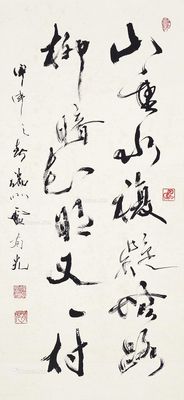 山重水複疑無路
柳暗花明又一村
甲申之春